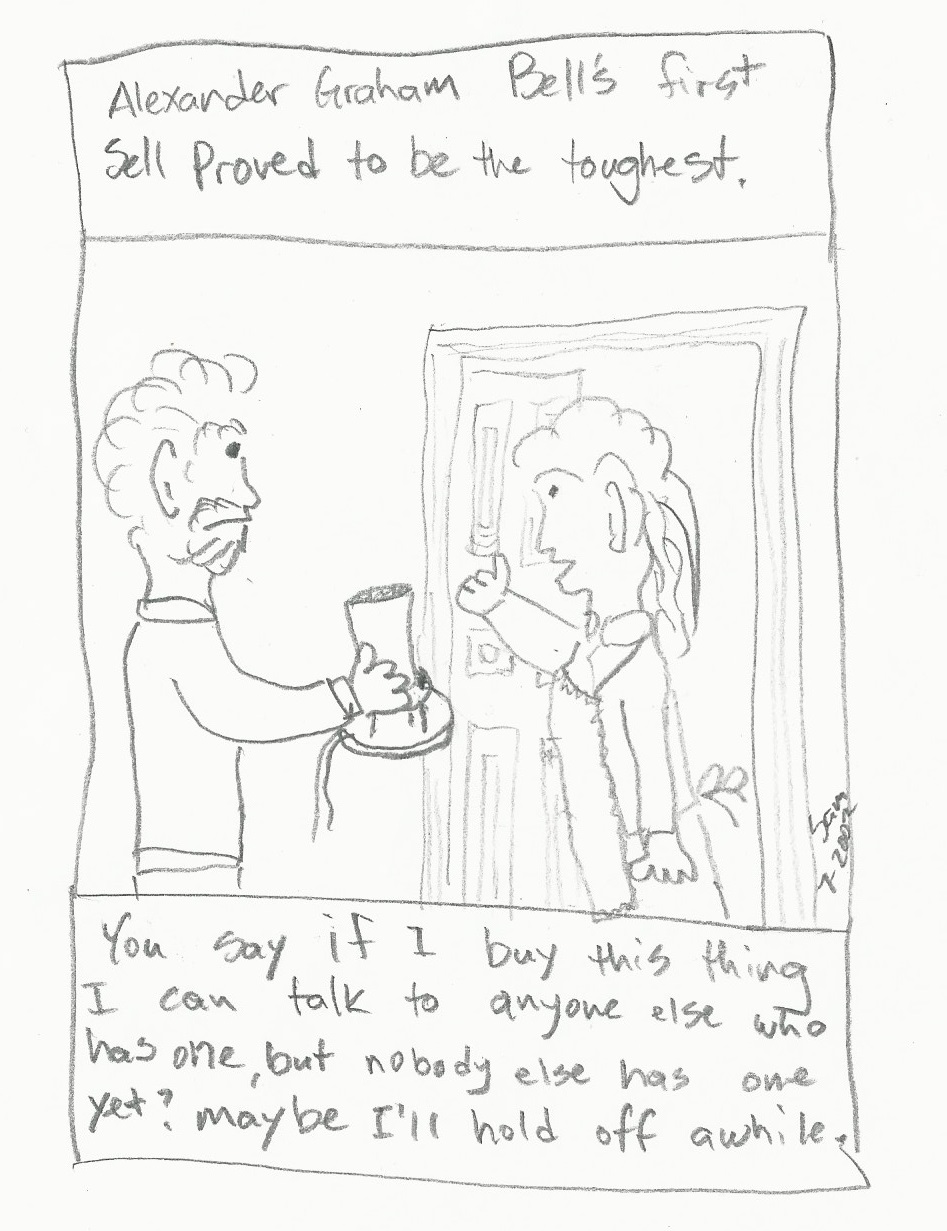 Alexander Graham Bell's first
Sell Proved to be the toughest.
You say if I buy this thing
I can talk to anyone else who
has one, but nobody else has one
yet? maybe I'll hold off awhile.